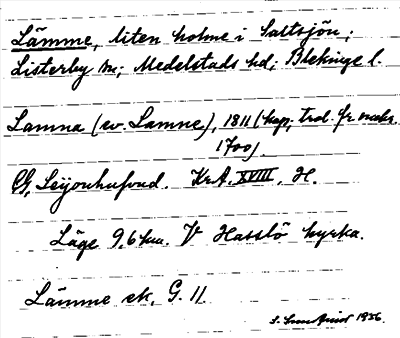 Lämme, liten holme i Saltsjön;
Listerby sn; Medelstads hd; Blekinge l.
Lamna (ev. Lamne), 1811 (kop, trol. fr.
1700).
G. Leijonhufvud. KrA. XVIII. H.
Läge 9,6 km. V Hasslö kyrka.
Lämme ek, G. 11
1956.